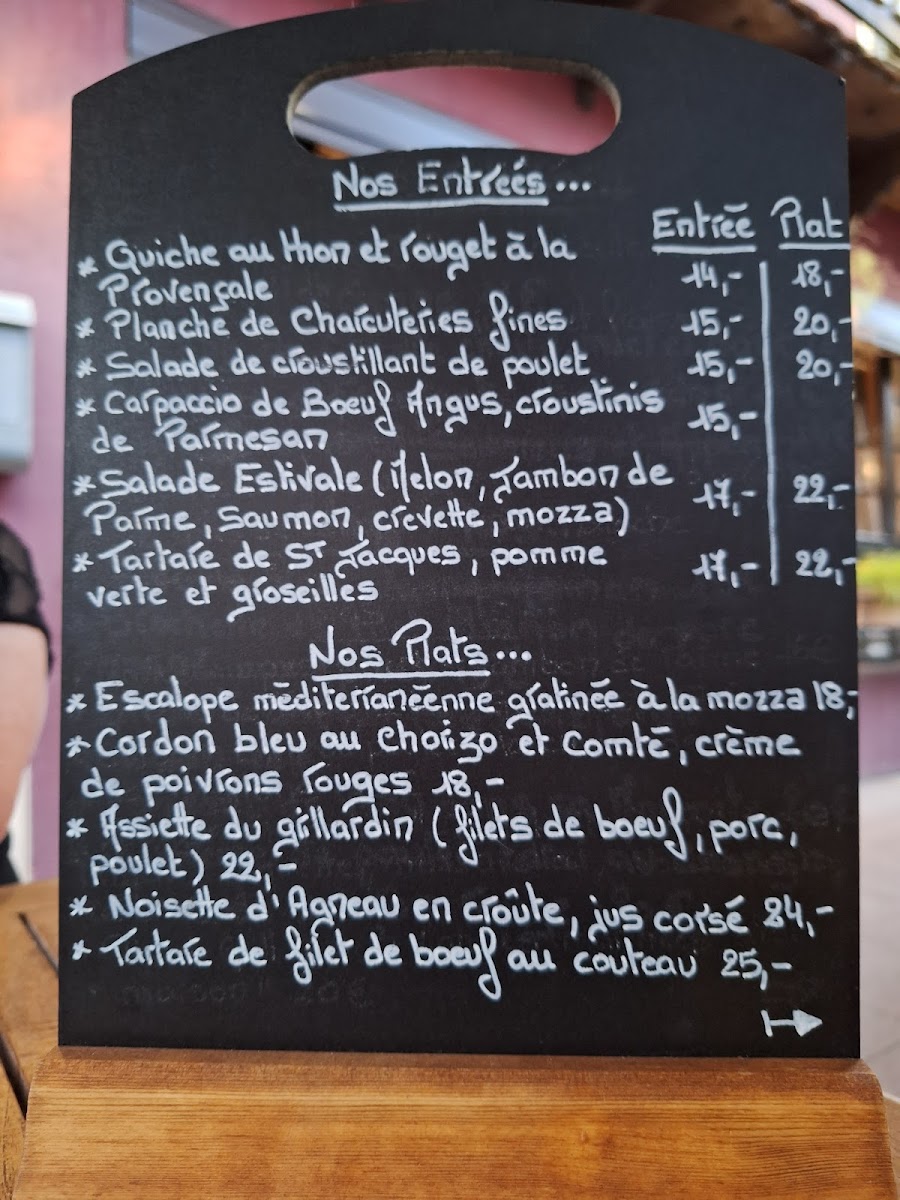 Nos Entreés...
Entrée Plat
* Quiche au thon et rouget à la
Provençale 14,- 18,-
* Planche de Charcuteries fines 15,- 20,-
* Salade de croustillant de poulet 15,- 20,-
* Carpaccio de Boeuf Angus, croustinis
de Parmesan 15,-
* Salade Estivale (Melon, Jambon de
Parme, saumon, crevette, mozza) 17,- 22,-
* Tartare de St Jacques, pomme
verte et groseilles 17,- 22,-
Nos Plats...
* Escalope méditerranéenne gratinée à la mozza 18,-
* Cordon bleu au chorizo et Comté, crème
de poivrons rouges 18,-
* Assiette du gillardin (filets de boeuf, porc,
poulet) 22,-
* Noisette d'Agneau en croûte, jus corsé 24,-
* Tartare de filet de boeuf au couteau 25,-